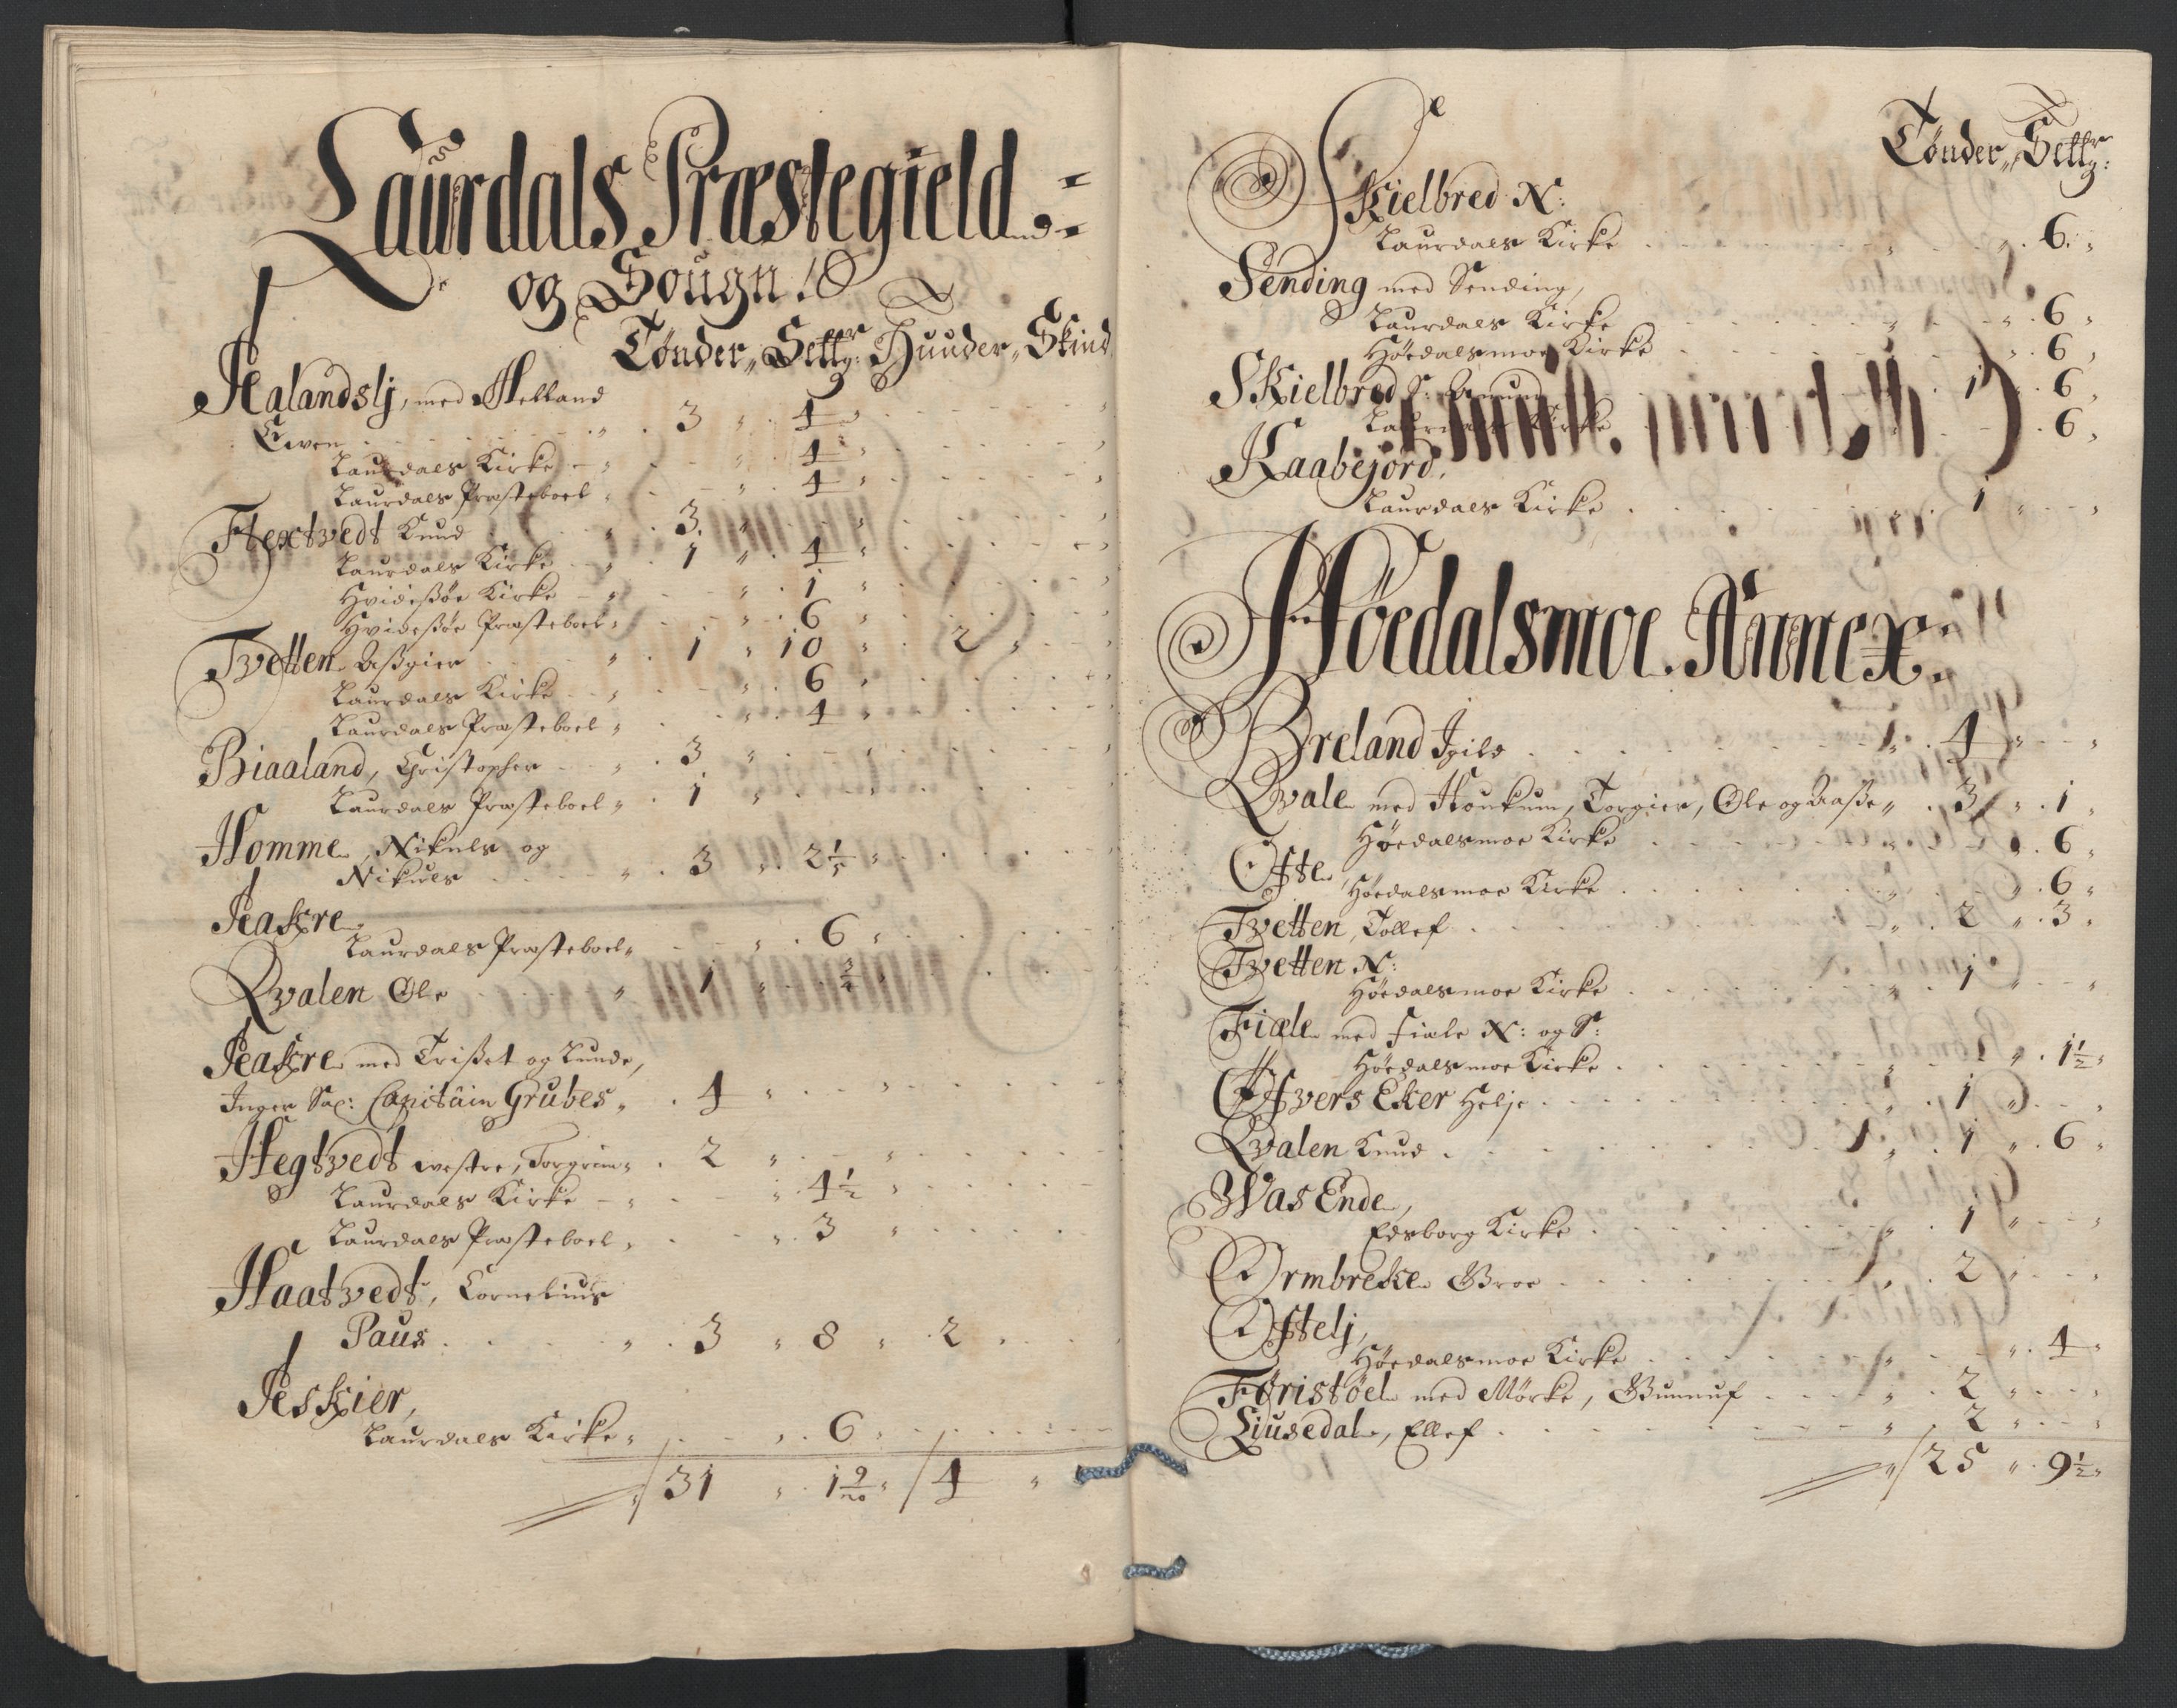 Laurdals Præstegield
og Sougn
Tønder, Settgr: Huuder, Skind
Aalandslj, med Helland
Ewen 3 4
Laurdals Kirke 4
Laurdals Præsteboel 4
Flextvedt Knud 3
Laurdals Kirke 1 4
Hvidesøe Kirke 1
Hvidesøe Præsteboel 6
Tvetten Aßgier 1 10 2
Laurdals Kirke 6
Laurdals Præsteboel 4
Biaaland, Christopher 3
Laurdals Præsteboel 1
Homme, Nikuls og
Nikuls 3 2 1/5
Aakre
Laurdals Præsteboel 6
Qvalen Ole 1 3/4
Aakre med Trißet og Lunde,
Inger Sal: Capitäin Grubes 4
Hegtvedt westre, Torgrim 2
Laurdals Kirke 4 1/2
Laurdals Præsteboel 3
Haatvedt, Cornelius
Paus 3 8 2
Askier,
Laurdals Kirke 6
31 1 9/20 4
Tønder, Settgr:
Skielbred N:
Laurdals Kirke 6
Sending med Sending,
Laurdals Kirke 6
Høedalsmoe Kirke 6
Skielbred S: 1 6
Laurdals Kirke 6
Kaabejord,
Laurdals Kirke 1
Höedalsmoe Annex:
Breland 4
Qvale med Houkum, Torgier, Ole og Aaße 3 1
Høedalsmoe Kirke 6
Ofte,
Høedalsmoe Kirke 6
Tvetten, Tollef 2 3
Tvetten N:
Høedalsmoe Kirke 1
Fiæle med Fiæle N: og S:
Høedalsmoe Kirke 1 1/2
Ofvers Eker Helje 1
Qvalen Knud 1 6
Was Ende,
Edsborg Kirke 1
Ormbrekke Groe 2
Oftelj,
Høedalsmoe Kirke 4
Føristøel med Mørke, Gunnuf 2
Liusedal, Ellef 2
25 9 1/2